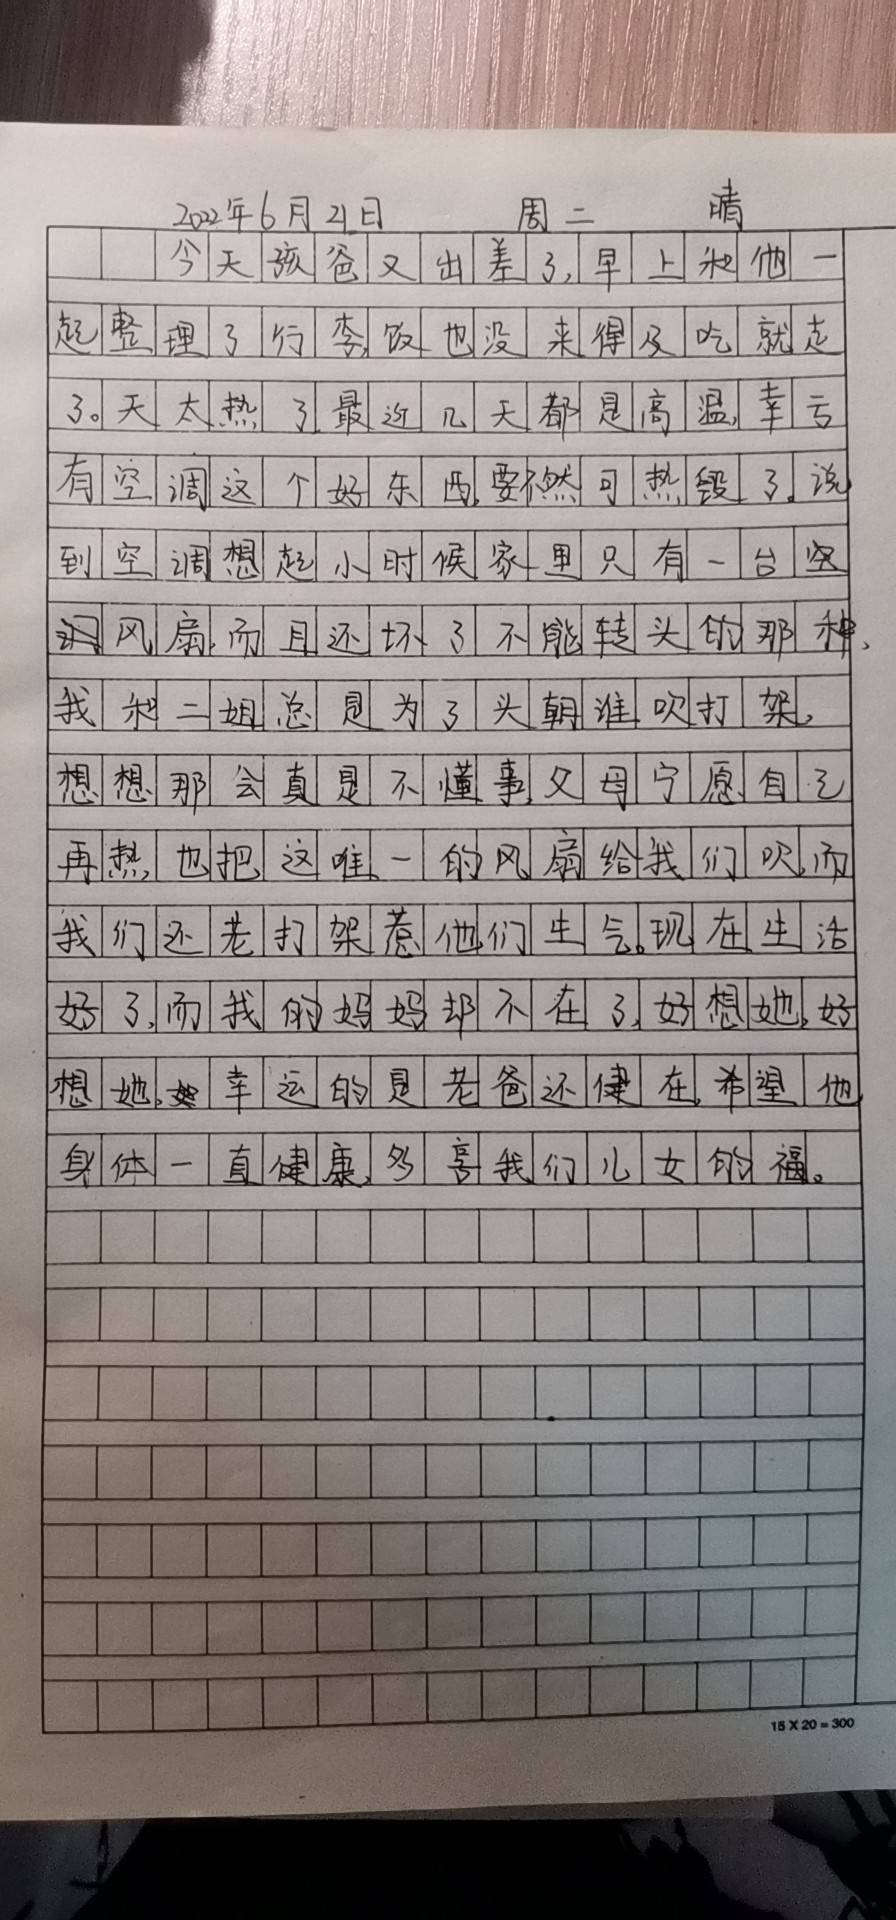 2022年6月21日 周二 晴
今天孩爸又出差了,早上和他一
起整理了行李,饭也没来得及吃就走
了。天太热了,最近几天都是高温,幸亏
有空调这个好东西,要不然可热毁了,说
到空调想起小时候家里只有一台
风扇,而且还坏了不能转头的那种,
我和二姐总是为了头朝谁吹打架,
想想那会真是不懂事,父母宁愿自己
再热,也把这唯一的风扇给我们吹,而
我们还老打架惹他们生气。现在生活
好了,而我的妈妈却不在了,好想她,好
想她,幸运的是老爸还健在,希望他
身体一直健康,多享我们儿女的福。
15 X 20 = 300